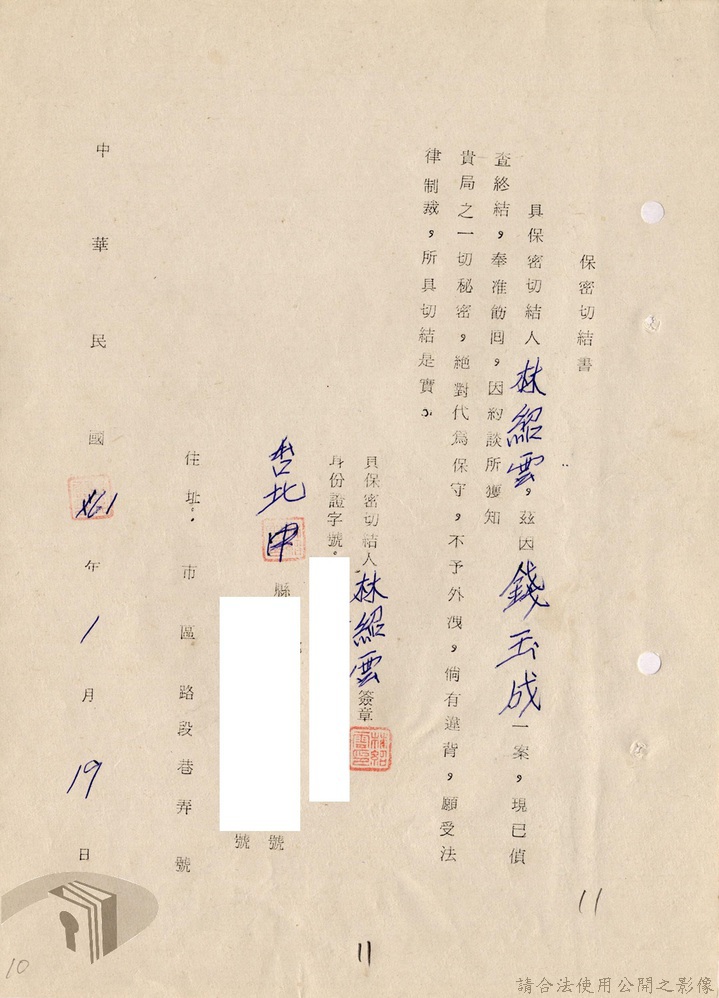 保密切結書
具保密切結人林紹雲,茲因錢玉成一案,現已偵
查終結,奉准飭回,因約談所獲知
貴局之一切秘密,絕對代為保守,不予外洩,倘有違背,願受法
律制裁,所具切結是實。
具保密切結人林紹雲簽章
林紹雲印
身份證字號:
台北市
縣
號
號
住址:市區路段巷弄號
中華民國61年1月19日
11
11
10
請合法使用公開之影像